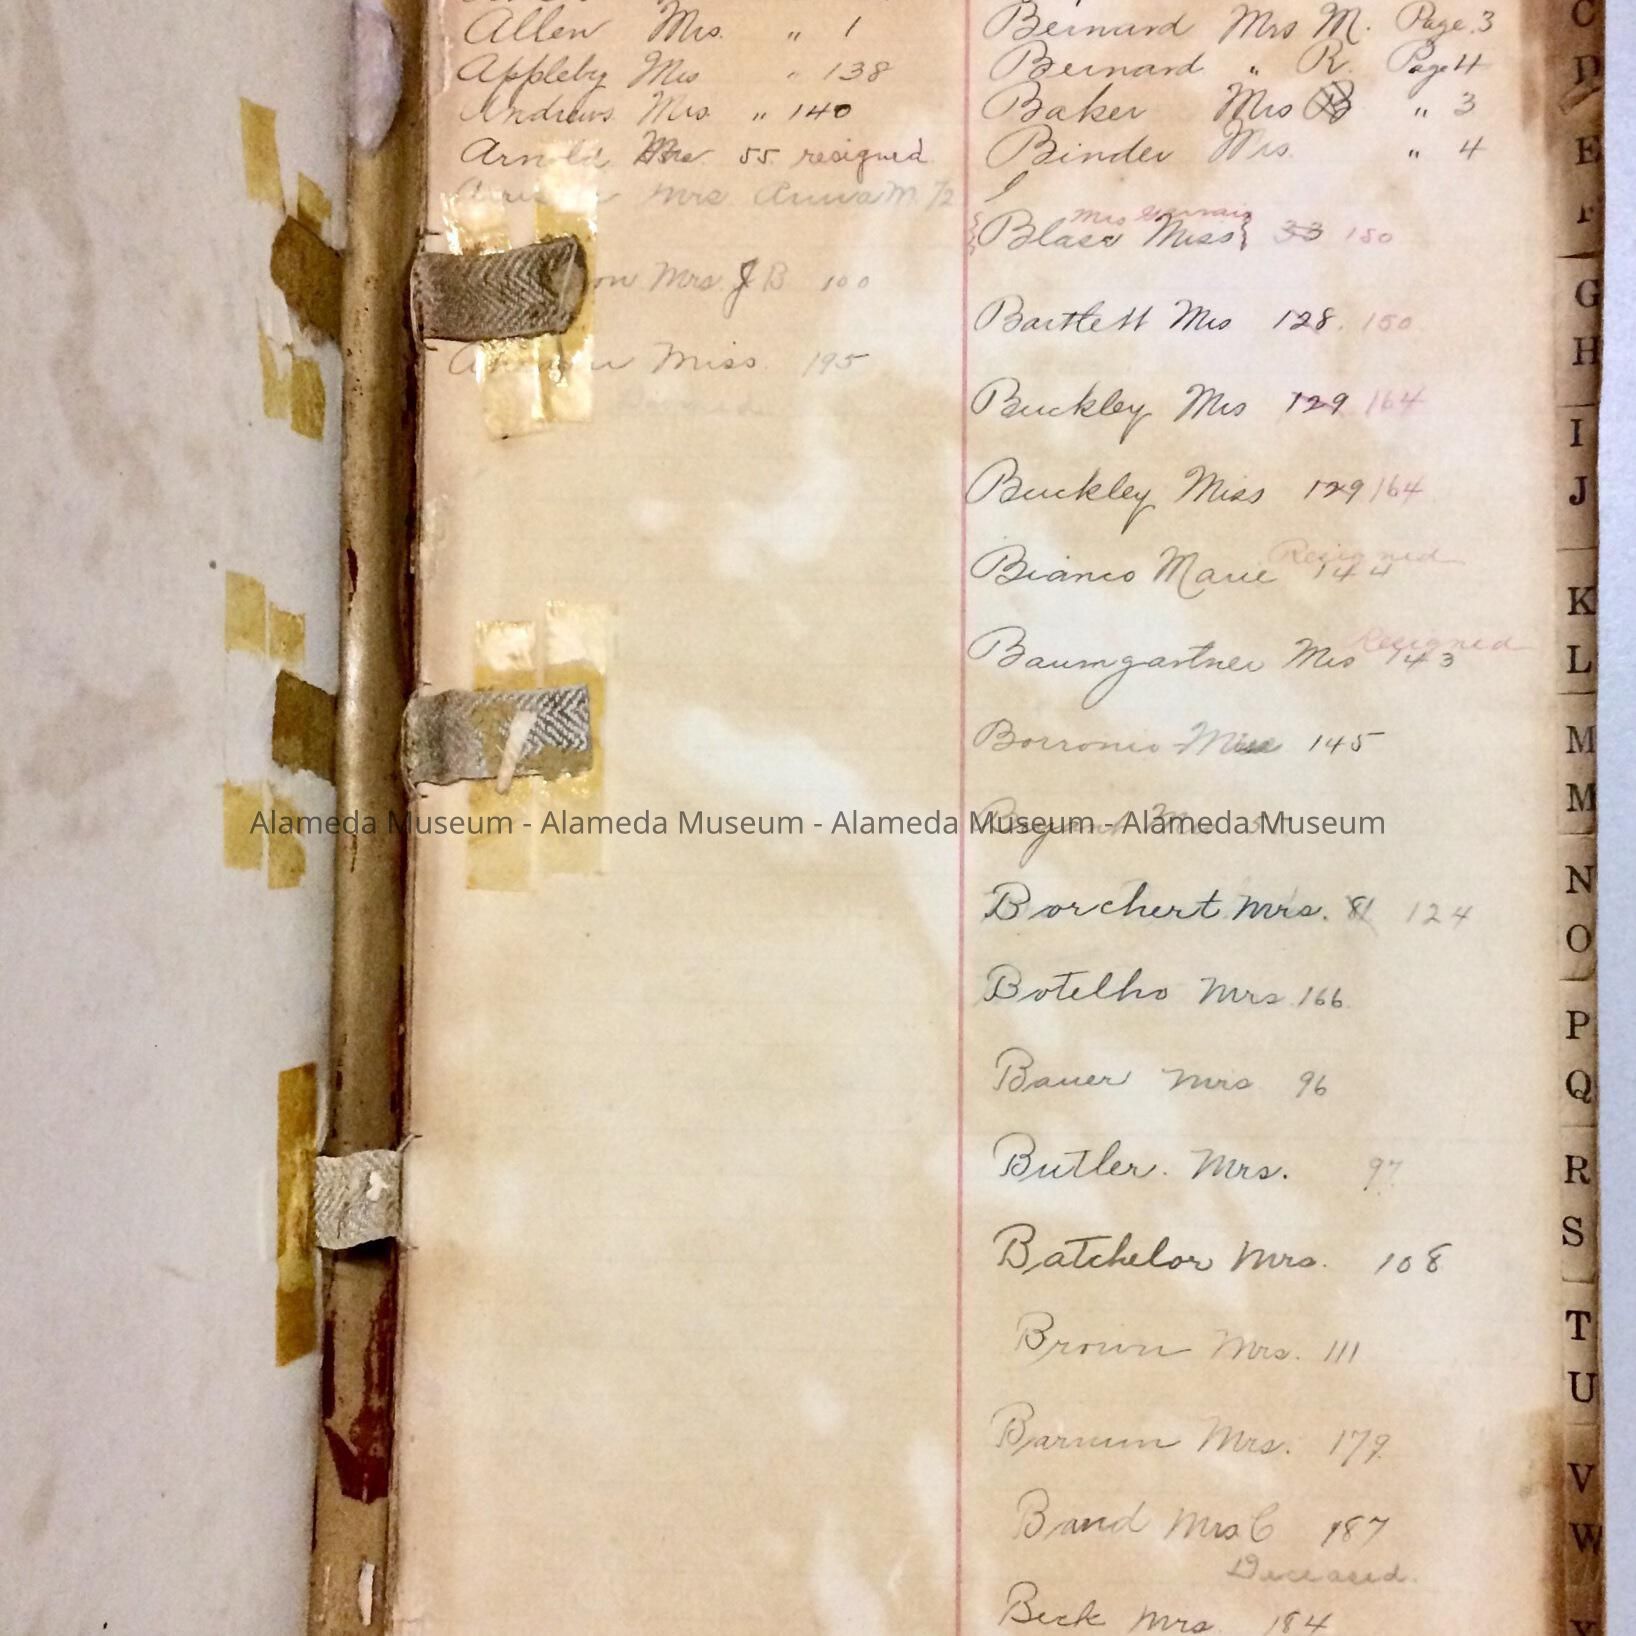 Allen Mrs. " 1
Appleby Mrs " 138
Andrews Mrs. " 140
Arnold Mrs. 55 resigned
Mrs Anna M. 72
on Mrs. J B 100
Miss. 195
Bernard Mrs M. Page. 3
Bernard " R. Page 4
Baker Mrs B " 3
Binder Mrs. " 4
Mrs
Miss 33 150
Bartlett Mrs 128. 150
Buckley Mrs 129 164
Buckley Miss 129 164
Resigned
Bianco Marie 144
Resigned
Baumgartner Mrs 143
Borronio Miss 145
Alameda Museum - Alameda Museum - Alameda Museum - Alameda Museum
Borchert Mrs. 81 124
Botelho Mrs. 166
Bauer Mrs 96
Butler. Mrs. 97
Batchelor Mrs. 108
Brown Mrs. 111
Barnum Mrs. 179
Band Mrs C 187
Deceased.
Beck Mrs. 184
C
D
E
F
G
H
I
J
K
L
M
M
N
O
P
Q
R
S
T
U
V
W